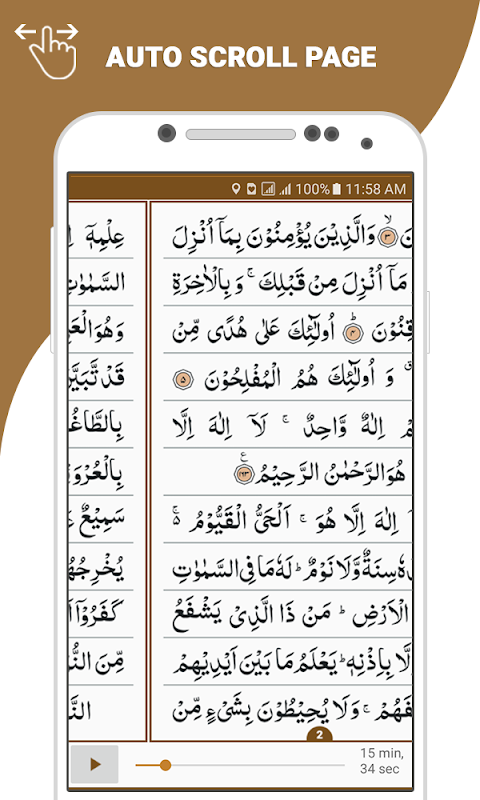 AUTO SCROLL PAGE
100% 11:58 AM
نَ ۙ۳ وَالَّذِيْنَ يُؤْمِنُوْنَ بِمَآ اُنْزِلَ
مَآ اُنْزِلَ مِنْ قَبْلِكَ ۚ وَ بِالْاٰخِرَةِ
قِنُوْنَ ؕ۴ اُولٰٓئِكَ عَلٰى هُدًى مِّنْ
وَ اُولٰٓئِكَ هُمُ الْمُفْلِحُوْنَ ۵
مْ اِلٰهٌ وَّاحِدٌ ۚ لَآ اِلٰهَ اِلَّا
هُوَالرَّحْمٰنُ الرَّحِيْمُ
اِلٰهَ اِلَّا هُوَ ۚ اَلْحَىُّ الْقَيُّوْمُ ۚ۵
هٗ سِنَةٌ وَّلَا نَوْمٌ ؕ لَهٗ مَا فِى السَّمٰوٰتِ
الْاَرْضِ ؕ مَنْ ذَا الَّذِىْ يَشْفَعُ
لَّا بِاِذْنِهٖ ؕ يَعْلَمُ مَا بَيْنَ اَيْدِيْهِمْ
فَهُمْ ۚ وَلَا يُحِيْطُوْنَ بِشَىْءٍ مِّنْ
2
عِلْمِهٖٓ اِ
السَّمٰوٰتِ
وَهُوَ الْعَ
قَدْ تَّبَيَّ
بِالطَّاغُ
بِالْعُرْوَ
سَمِيْعٌ عَ
يُخْرِجُهُ
كَفَرُوْٓا ا
مِّنَ النُّ
النَّ
15 min,
34 sec